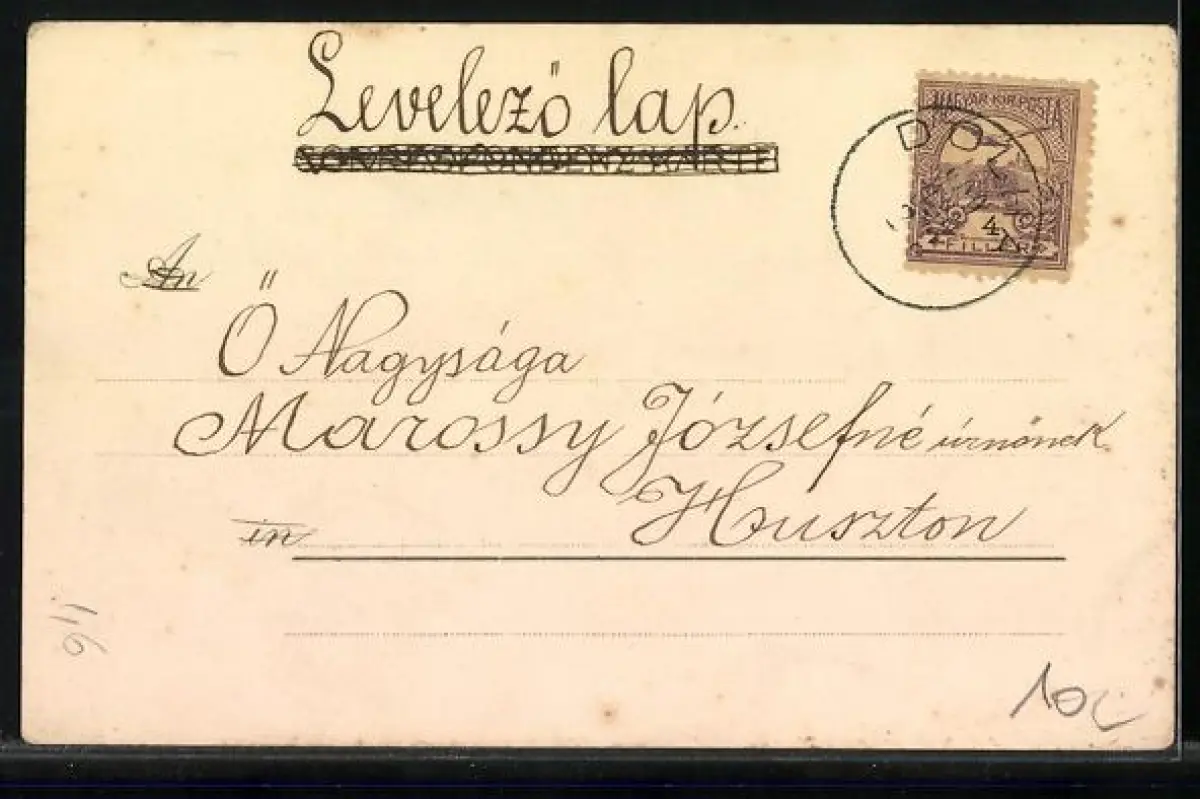 Levelező lap.
MAGYAR KIR. POSTA
4
FILLÉR
An
Ő Nagysága
Marossy Józsefné úrnőnek
Huszton
in